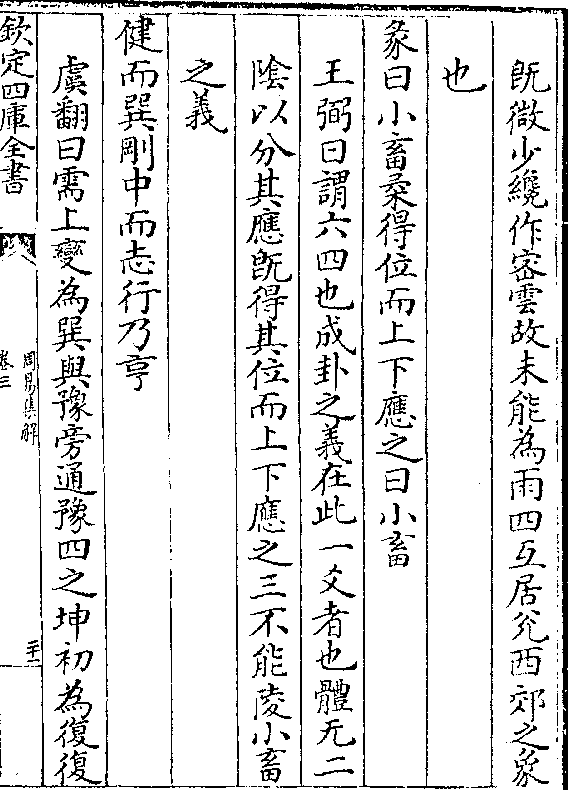 既微少纔作密雲故未能為雨四互居兊西郊之象
也
彖曰小畜柔得位而上下應之曰小畜
王弼曰謂六四也成卦之義在此一爻者也體无二
隂以分其應旣得其位而上下應之三不能陵小畜
之義
健而巽剛中而志行乃亨
虞翻曰需上變為巽與豫旁通豫四之坤初為復復
欽定四庫全書
周易集解
卷三